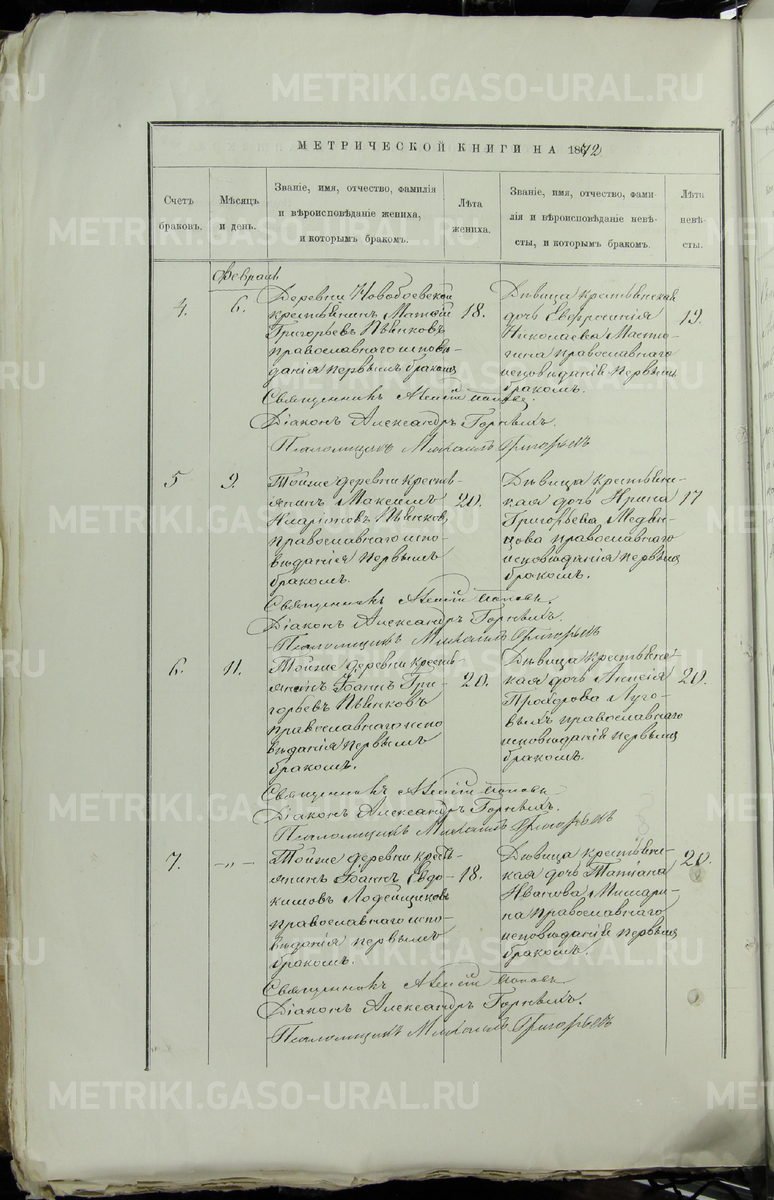 METRIKI.GASO-URAL.RU
МЕТРИЧЕСКОЙ КНИГИ НА 1872
Счетъ браковъ.
Мѣсяцъ и день.
Званіе, имя, отчество, фамилія
и вѣроисповѣданіе жениха,
и которымъ бракомъ.
Лѣта жениха.
Званіе, имя, отчество, фами-
лія и вѣроисповѣданіе невѣ-
сты, и которымъ бракомъ.
Лѣта невѣ-
сты.
Февраль
4.
6.
Деревни Новобоевской
крестьянинъ Матѳей
Григорьевъ Пьянковъ
православнаго испові-
данія первымъ бракомъ
18.
Дѣвица крестьянская
дочь Евфросинія
Николаева
православнаго
исповѣданій первымъ
бракомъ.
19.
Священникъ Алексій Поповъ.
Діаконъ Александръ Горныхъ.
Псаломщикъ Михаилъ Григорьевъ
5
9.
Тойже деревни кресть-
янинъ Максимъ
Иларіоновъ Пьянковъ
православнаго испо-
вѣданія первымъ
бракомъ.
20.
Дѣвица крестьян-
ская дочь Ирина
Григорьева
православнаго
исповѣданія первымъ
бракомъ.
17
Священникъ Алексій Поповъ.
Діаконъ Александръ Горныхъ.
Псаломщикъ Михаилъ Григорьевъ
6.
11.
Тойже деревни кресть-
янинъ Іоаннъ Гри-
горьевъ Пьянковъ
православнаго испо
вѣданія первымъ
бракомъ.
20.
Дѣвица крестьян-
ская дочь Анисія
Луго-
выхъ православнаго
исповѣданій первымъ
бракомъ.
20.
Священникъ Алексій Поповъ
Діаконъ Александръ Горныхъ.
Псаломщикъ Михаилъ Григорьевъ
7.
-„-
Тойже деревни кресть-
янинъ Іоаннъ Евдо-
кимовъ Лодейщиковъ
православнаго испо-
вѣданія первымъ
бракомъ.
18.
Дѣвица крестьян-
ская дочь Татіана
Иванова Мишари-
на православнаго
исповѣданій первымъ
бракомъ.
20.
Священникъ Алексій Поповъ
Діаконъ Александръ Горныхъ.
Псаломщикъ Михаилъ Григорьевъ